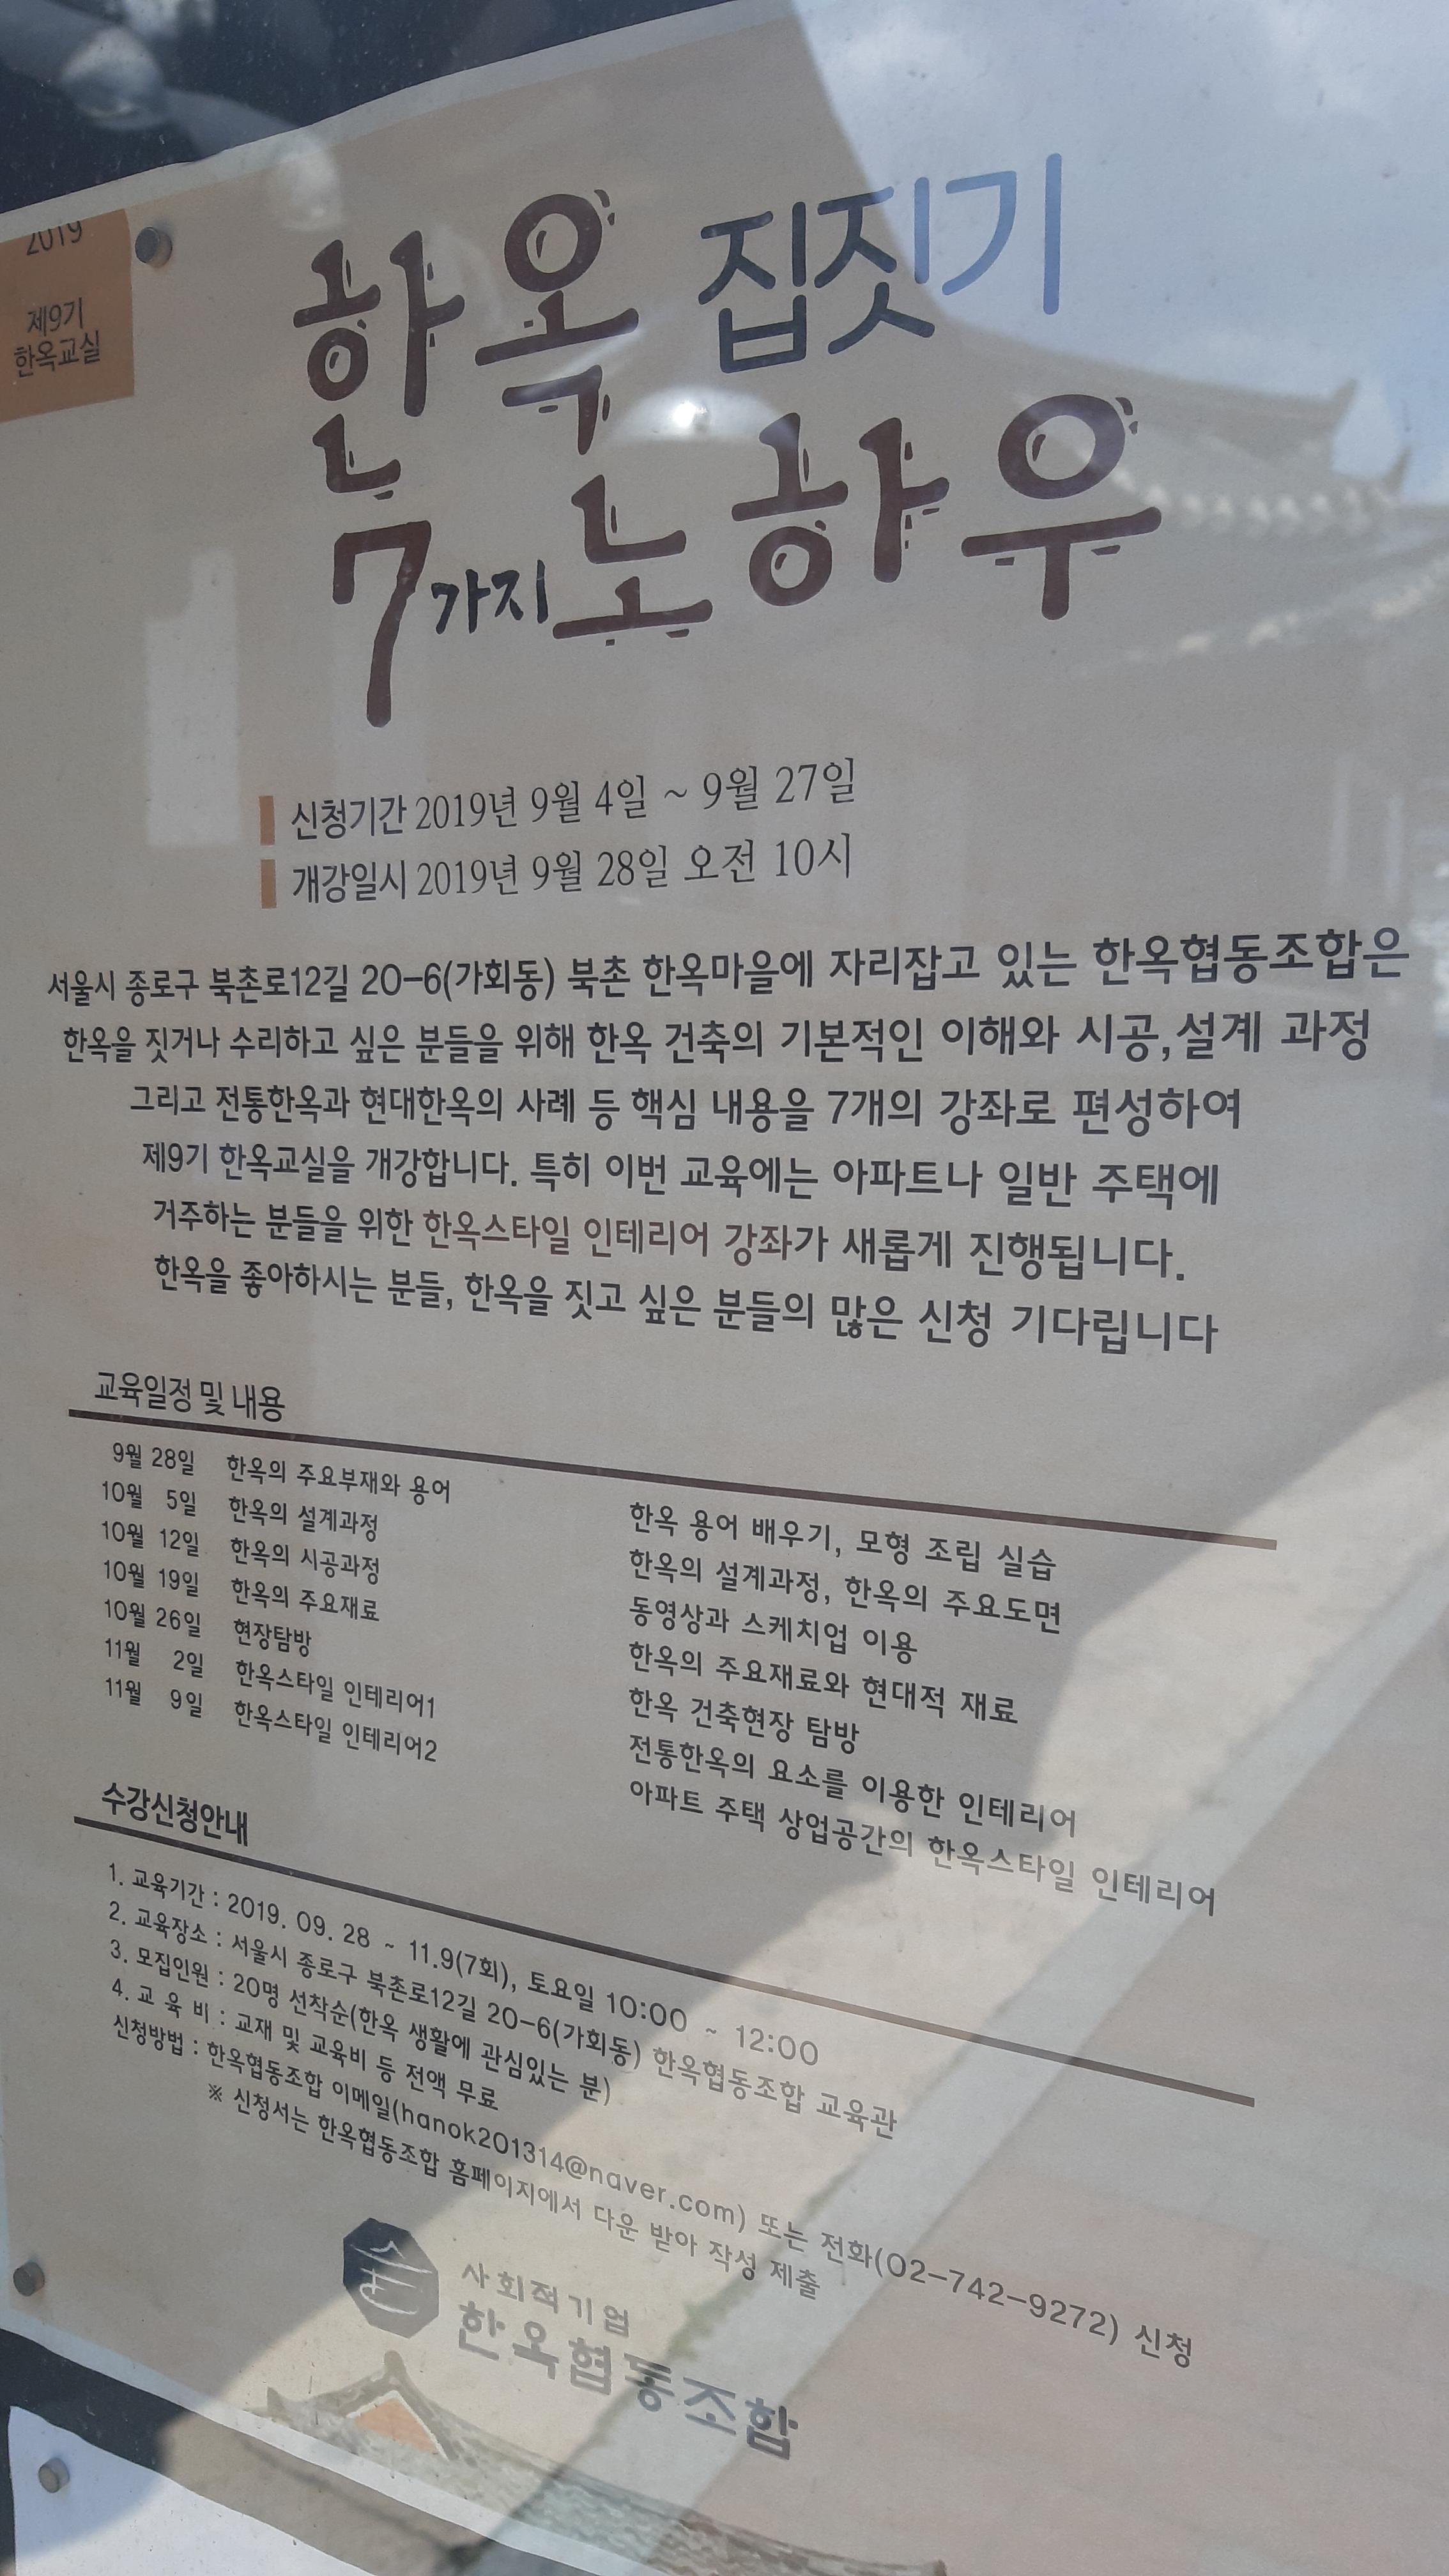 2019
제9기
한옥교실
한옥 집짓기
7가지 노하우
신청기간 2019년 9월 4일 ~ 9월 27일
개강일시 2019년 9월 28일 오전 10시
서울시 종로구 북촌로12길 20-6(가회동) 북촌 한옥마을에 자리잡고 있는 한옥협동조합은
한옥을 짓거나 수리하고 싶은 분들을 위해 한옥 건축의 기본적인 이해와 시공,설계 과정
그리고 전통한옥과 현대한옥의 사례 등 핵심 내용을 7개의 강좌로 편성하여
제9기 한옥교실을 개강합니다. 특히 이번 교육에는 아파트나 일반 주택에
거주하는 분들을 위한 한옥스타일 인테리어 강좌가 새롭게 진행됩니다.
한옥을 좋아하시는 분들, 한옥을 짓고 싶은 분들의 많은 신청 기다립니다
교육일정 및 내용
9월 28일 한옥의 주요부재와 용어 한옥 용어 배우기, 모형 조립 실습
10월 5일 한옥의 설계과정 한옥의 설계과정, 한옥의 주요도면
10월 12일 한옥의 시공과정 동영상과 스케치업 이용
10월 19일 한옥의 주요재료 한옥의 주요재료와 현대적 재료
10월 26일 현장탐방 한옥 건축현장 탐방
11월 2일 한옥스타일 인테리어1 전통한옥의 요소를 이용한 인테리어
11월 9일 한옥스타일 인테리어2 아파트 주택 상업공간의 한옥스타일 인테리어
수강신청안내
1. 교육기간 : 2019. 09. 28 ~ 11.9(7회), 토요일 10:00 ~ 12:00
2. 교육장소 : 서울시 종로구 북촌로12길 20-6(가회동) 한옥협동조합 교육관
3. 모집인원 : 20명 선착순(한옥 생활에 관심있는 분)
4. 교 육 비 : 교재 및 교육비 등 전액 무료
신청방법 : 한옥협동조합 이메일(hanok201314@naver.com) 또는 전화(02-742-9272) 신청
※ 신청서는 한옥협동조합 홈페이지에서 다운 받아 작성 제출
사회적기업
한옥협동조합